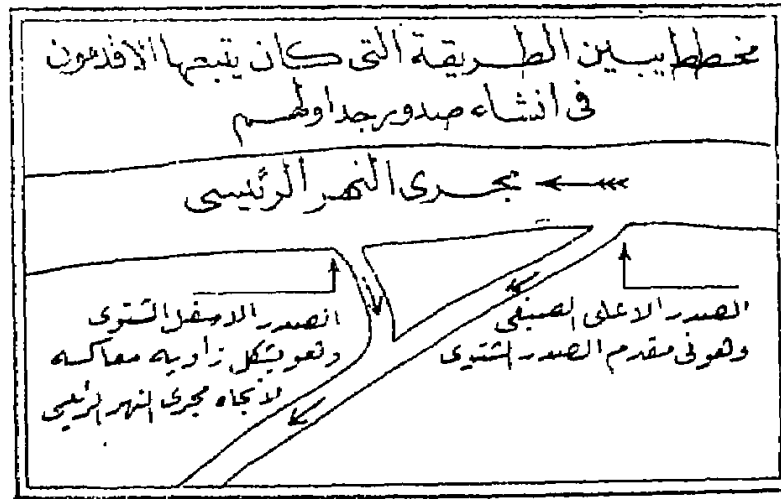 مخطط يبين الطريقة التي كان يتبعها الأقدمون
في انشاء صدور جداولهم
مجرى النهر الرئيسي
الصدر الاعلى الصيفي
وهو في مقدم الصدر الشتوي
الصدر الاسفل الشتوي
وهو بشكل زاوية معاكسة
لاتجاه مجرى النهر الرئيسي